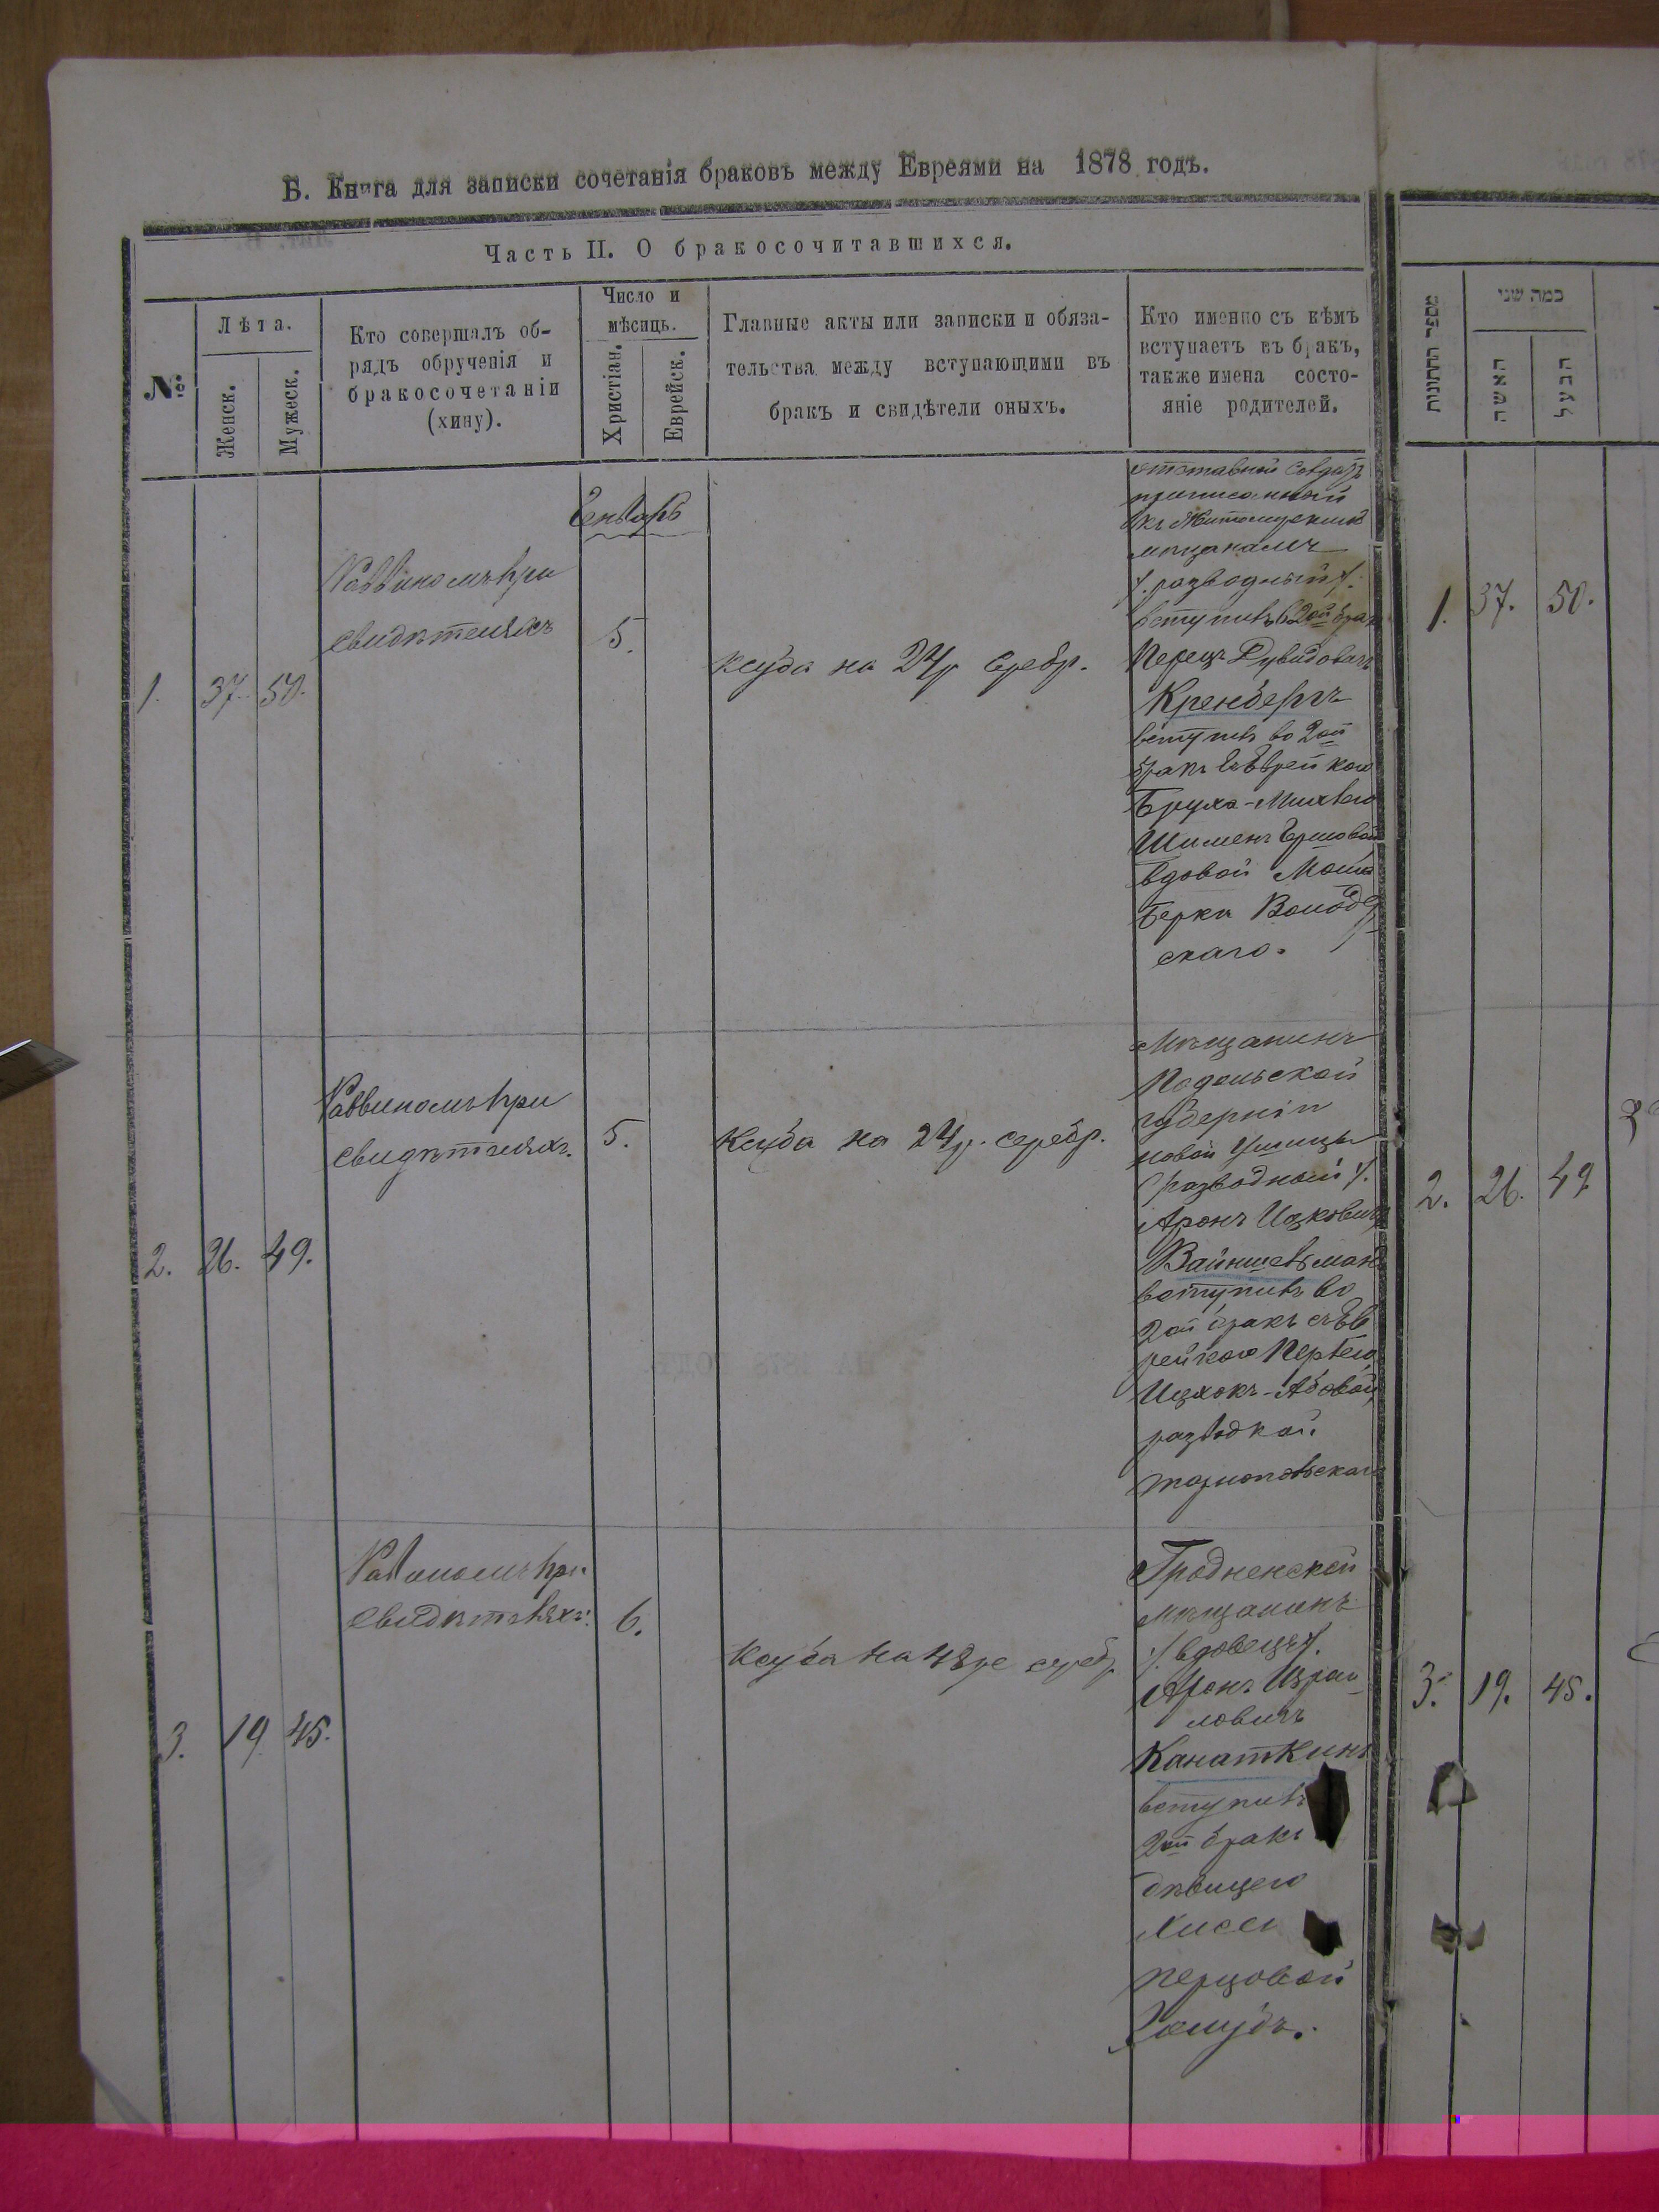 Б. Книга для записки сочетанія браковъ между Евреями на 1878 годъ.
Часть II. О бракосочитавшихся.
№
Лѣта.
Женск.
Мужеск.
Кто совершалъ об-
рядъ обрученія и
бракосочетаніи
(хину).
Число и
мѣсяць.
Христіан.
Еврейск.
Главные акты или записки и обяза-
тельства между вступающими въ
бракъ и свидѣтели оныхъ.
Кто именно съ кѣмъ
вступаетъ въ бракъ,
также имена состо-
яніе родителей.
מספר החתונות
כמה שני
האשה
הבעל
Енварь
1. 37. 50.
Раввиномъ при
свидѣтеляхъ
5.
ксуба на 24р серебр.
отставной солдатъ
приписанный
мѣщанамъ
/. разводный /.
вступилъ 2ой
Перецъ Дувидовичъ
Кренбергъ
вступилъ во 2ой
бракъ съ Еврейкою
Бруха-
вдовой
Берки
скаго.
1. 37. 50.
2. 26. 49.
Раввиномъ при
свидѣтеляхъ.
5.
Ксуба на 24р. серебр.
Мѣщанинъ
Подольской
губерніи
новой Ушицы
разводный /.
Аронъ Ицковичъ
Вайншельман
вступилъ во
2ой бракъ съ Ев
рейкою Перлею
Ицхокъ-Абовой
разводкой
2. 26. 49
3. 19 45.
Раввиномъ при
свидѣтеляхъ.
6.
Ксуба на 48р серебр
Гродненской
мѣщанинъ
/. вдовецъ /.
Аронъ Израи
ловичъ
Канаткинъ
вступилъ
2ой бракъ
дѣвицею
перцовой
3. 19. 45.